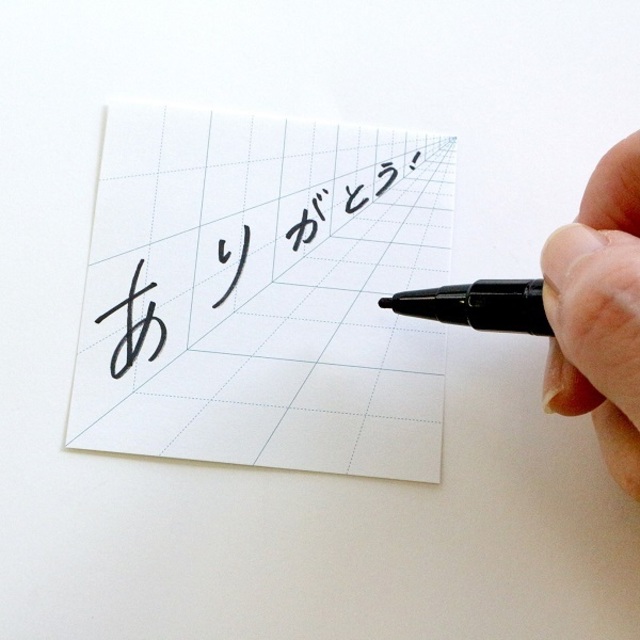 ありがとう!